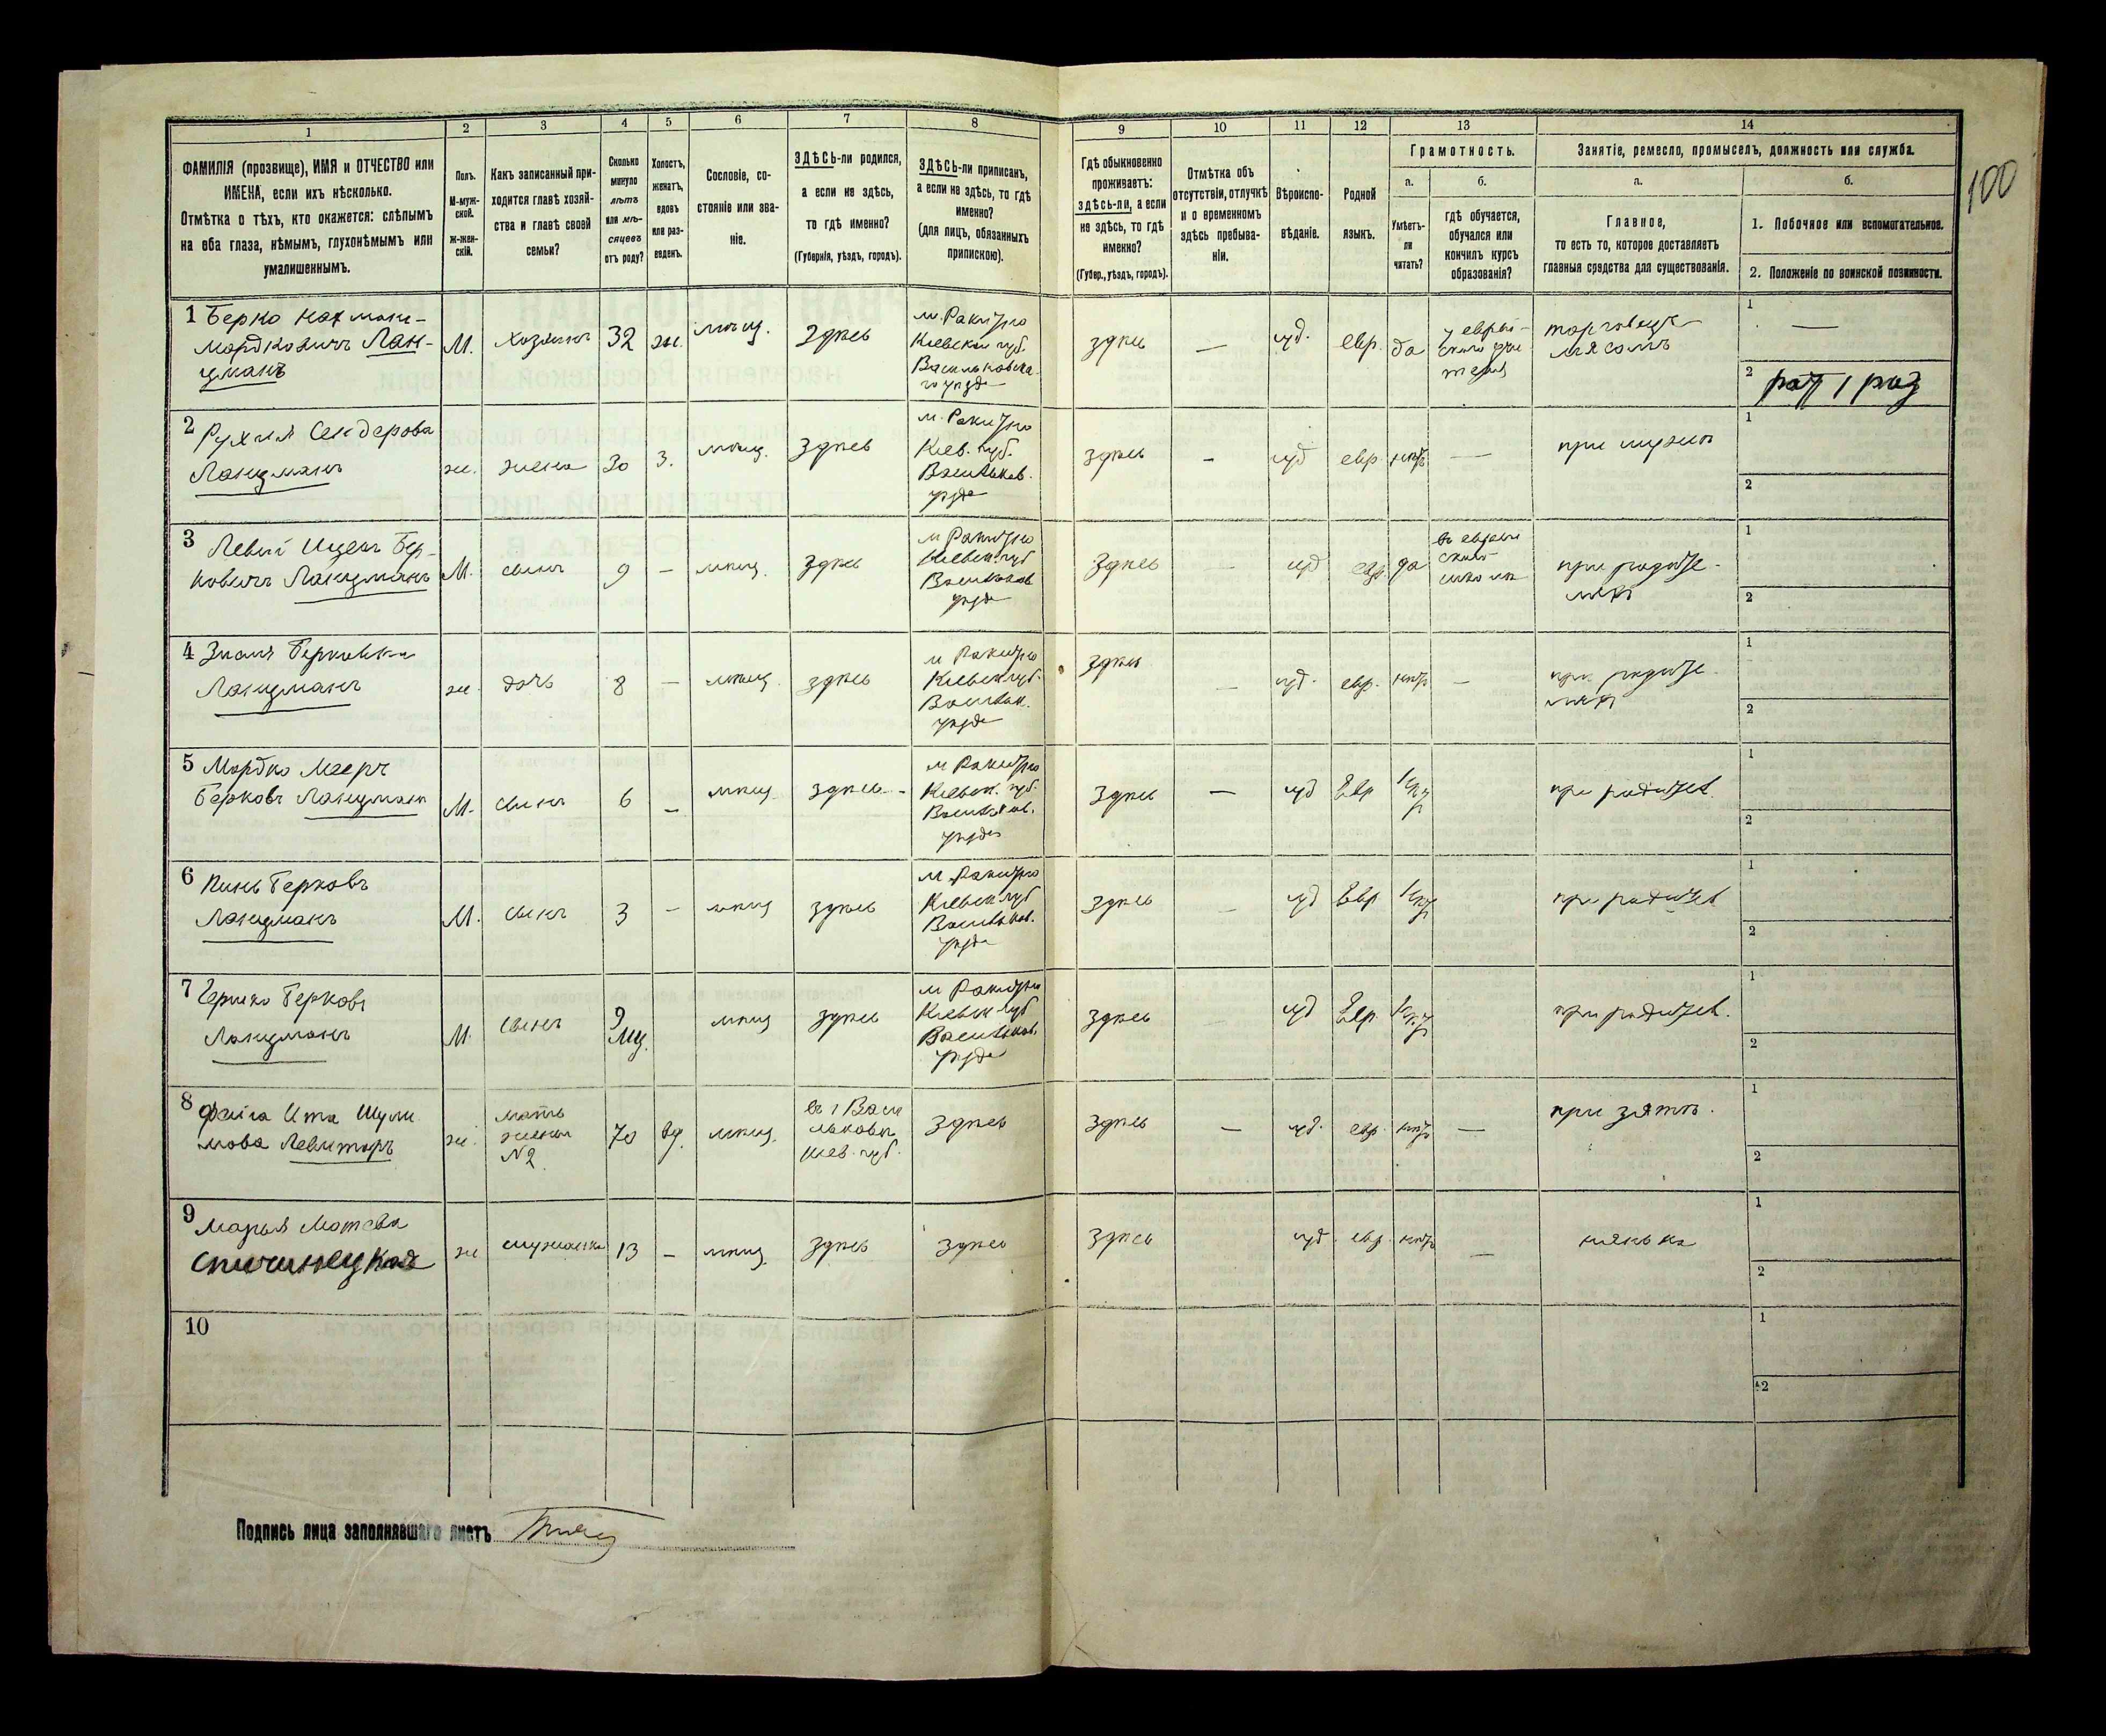 1 2 3 4 5 6 7 8 9 10 11 12 13 14
ФАМИЛІЯ (прозвище), ИМЯ и ОТЧЕСТВО или
ИМЕНА, если ихъ нѣсколько.
Отмѣтка о тѣхъ, кто окажется: слѣпымъ
на оба глаза, нѣмымъ, глухонѣмымъ или
умалишеннымъ.
Полъ.
М-муж-
ской.
Ж-жен-
скій.
Какъ записанный при-
ходится главѣ хозяй-
ства и главѣ своей
семьи?
Сколько
минуло
лѣтъ
или мѣ-
сяцевъ
отъ роду?
Холостъ,
женатъ,
вдовъ
или раз-
веденъ.
Сословіе, со-
стояніе или зва-
ніе.
ЗДѢСЬ-ли родился,
а если не здѣсь,
то гдѣ именно?
(Губернія, уѣздъ, городъ).
ЗДѢСЬ-ли приписанъ,
а если не здѣсь, то гдѣ
именно?
(для лицъ, обязанныхъ
припискою).
Гдѣ обыкновенно
проживаетъ:
здѣсь-ли, а если
не здѣсь, то гдѣ
именно?
(Губер., уѣздъ, городъ).
Отмѣтка объ
отсутствіи, отлучкѣ
и о временномъ
здѣсь пребыва-
ніи.
Вѣроиспо-
вѣданіе.
Родной
языкъ.
Грамотность.
а.
Умѣетъ-
ли
читать?
б.
гдѣ обучается,
обучался или
кончилъ курсъ
образованія?
Занятіе, ремесло, промыселъ, должность или служба.
а.
Главное,
то есть то, которое доставляетъ
главныя средства для существованія.
б.
1. Побочное или вспомогательное.
2. Положеніе по воинской повинности.
100
1 Берко Нахман-
Мордковичъ Лан-
цманъ
М. хозяинъ 32 ж. мѣщ. здѣсь
м. Ракитно
Кіевской губ.
Васильковска-
го уѣзда
здѣсь — іуд. евр. да
у еврей-
скаго учи-
теля
торговецъ
мясомъ
1 —
2
2 Рухля Сендерова
Ланцманъ
ж. жена 30 з. мѣщ. здѣсь
м. Ракитно
Кіев. губ.
Васильков.
уѣзда
здѣсь - іуд евр нѣтъ — при мужѣ
1
2
3 Левій Ицекъ Бер-
ковичъ Ланцманъ
М. сынъ 9 — мѣщ. здѣсь
м Ракитно
Кіевск. губ
Васильков
уѣзда
здѣсь — іуд евр. да
въ еврей
ской
школѣ
при родите-
ляхъ
1
2
4
Ланцманъ
ж. дочь 8 — мѣщ. здѣсь
м Ракитно
Кіевск губ.
Васильк.
уѣзда
здѣсь — іуд. евр. нѣтъ —
при родите-
ляхъ
1
2
5 Мордко Мееръ
Берковъ Ланцман
М. сынъ 6 — мѣщ здѣсь -
м Ракитно
Кіевск. губ.
Васильков.
уѣзда
здѣсь — іуд Евр нѣт при родител.
1
2
6 Пинь Берковъ
Ланцманъ
М. сынъ 3 — мѣщ здѣсь
м Ракитно
Кіевск губ
Васильков.
уѣзда
здѣсь — іуд Евр нѣт при родител
1
2
7 Гершко Берковъ
Ланцманъ
М. сынъ 9
мц.
мѣщ здѣсь
м Ракитно
Кіевск губ
Васильков.
уѣзда
здѣсь іуд Евр нѣт при родител.
1
2
8 Фейга Ита Шули
мова Левиторъ
ж.
мать
жены
№2
70 вд. мѣщ.
въ г Васи
льковѣ
Кіев. губ.
здѣсь здѣсь — іуд. евр. нѣтъ — при зятѣ.
1
2
9 Марья Мотева
Спичинецкая
ж служанка 13 — мѣщ. здѣсь здѣсь здѣсь іуд. евр. нѣтъ — нянька
1
2
10
1
2
Подпись лица заполнявшаго листъ